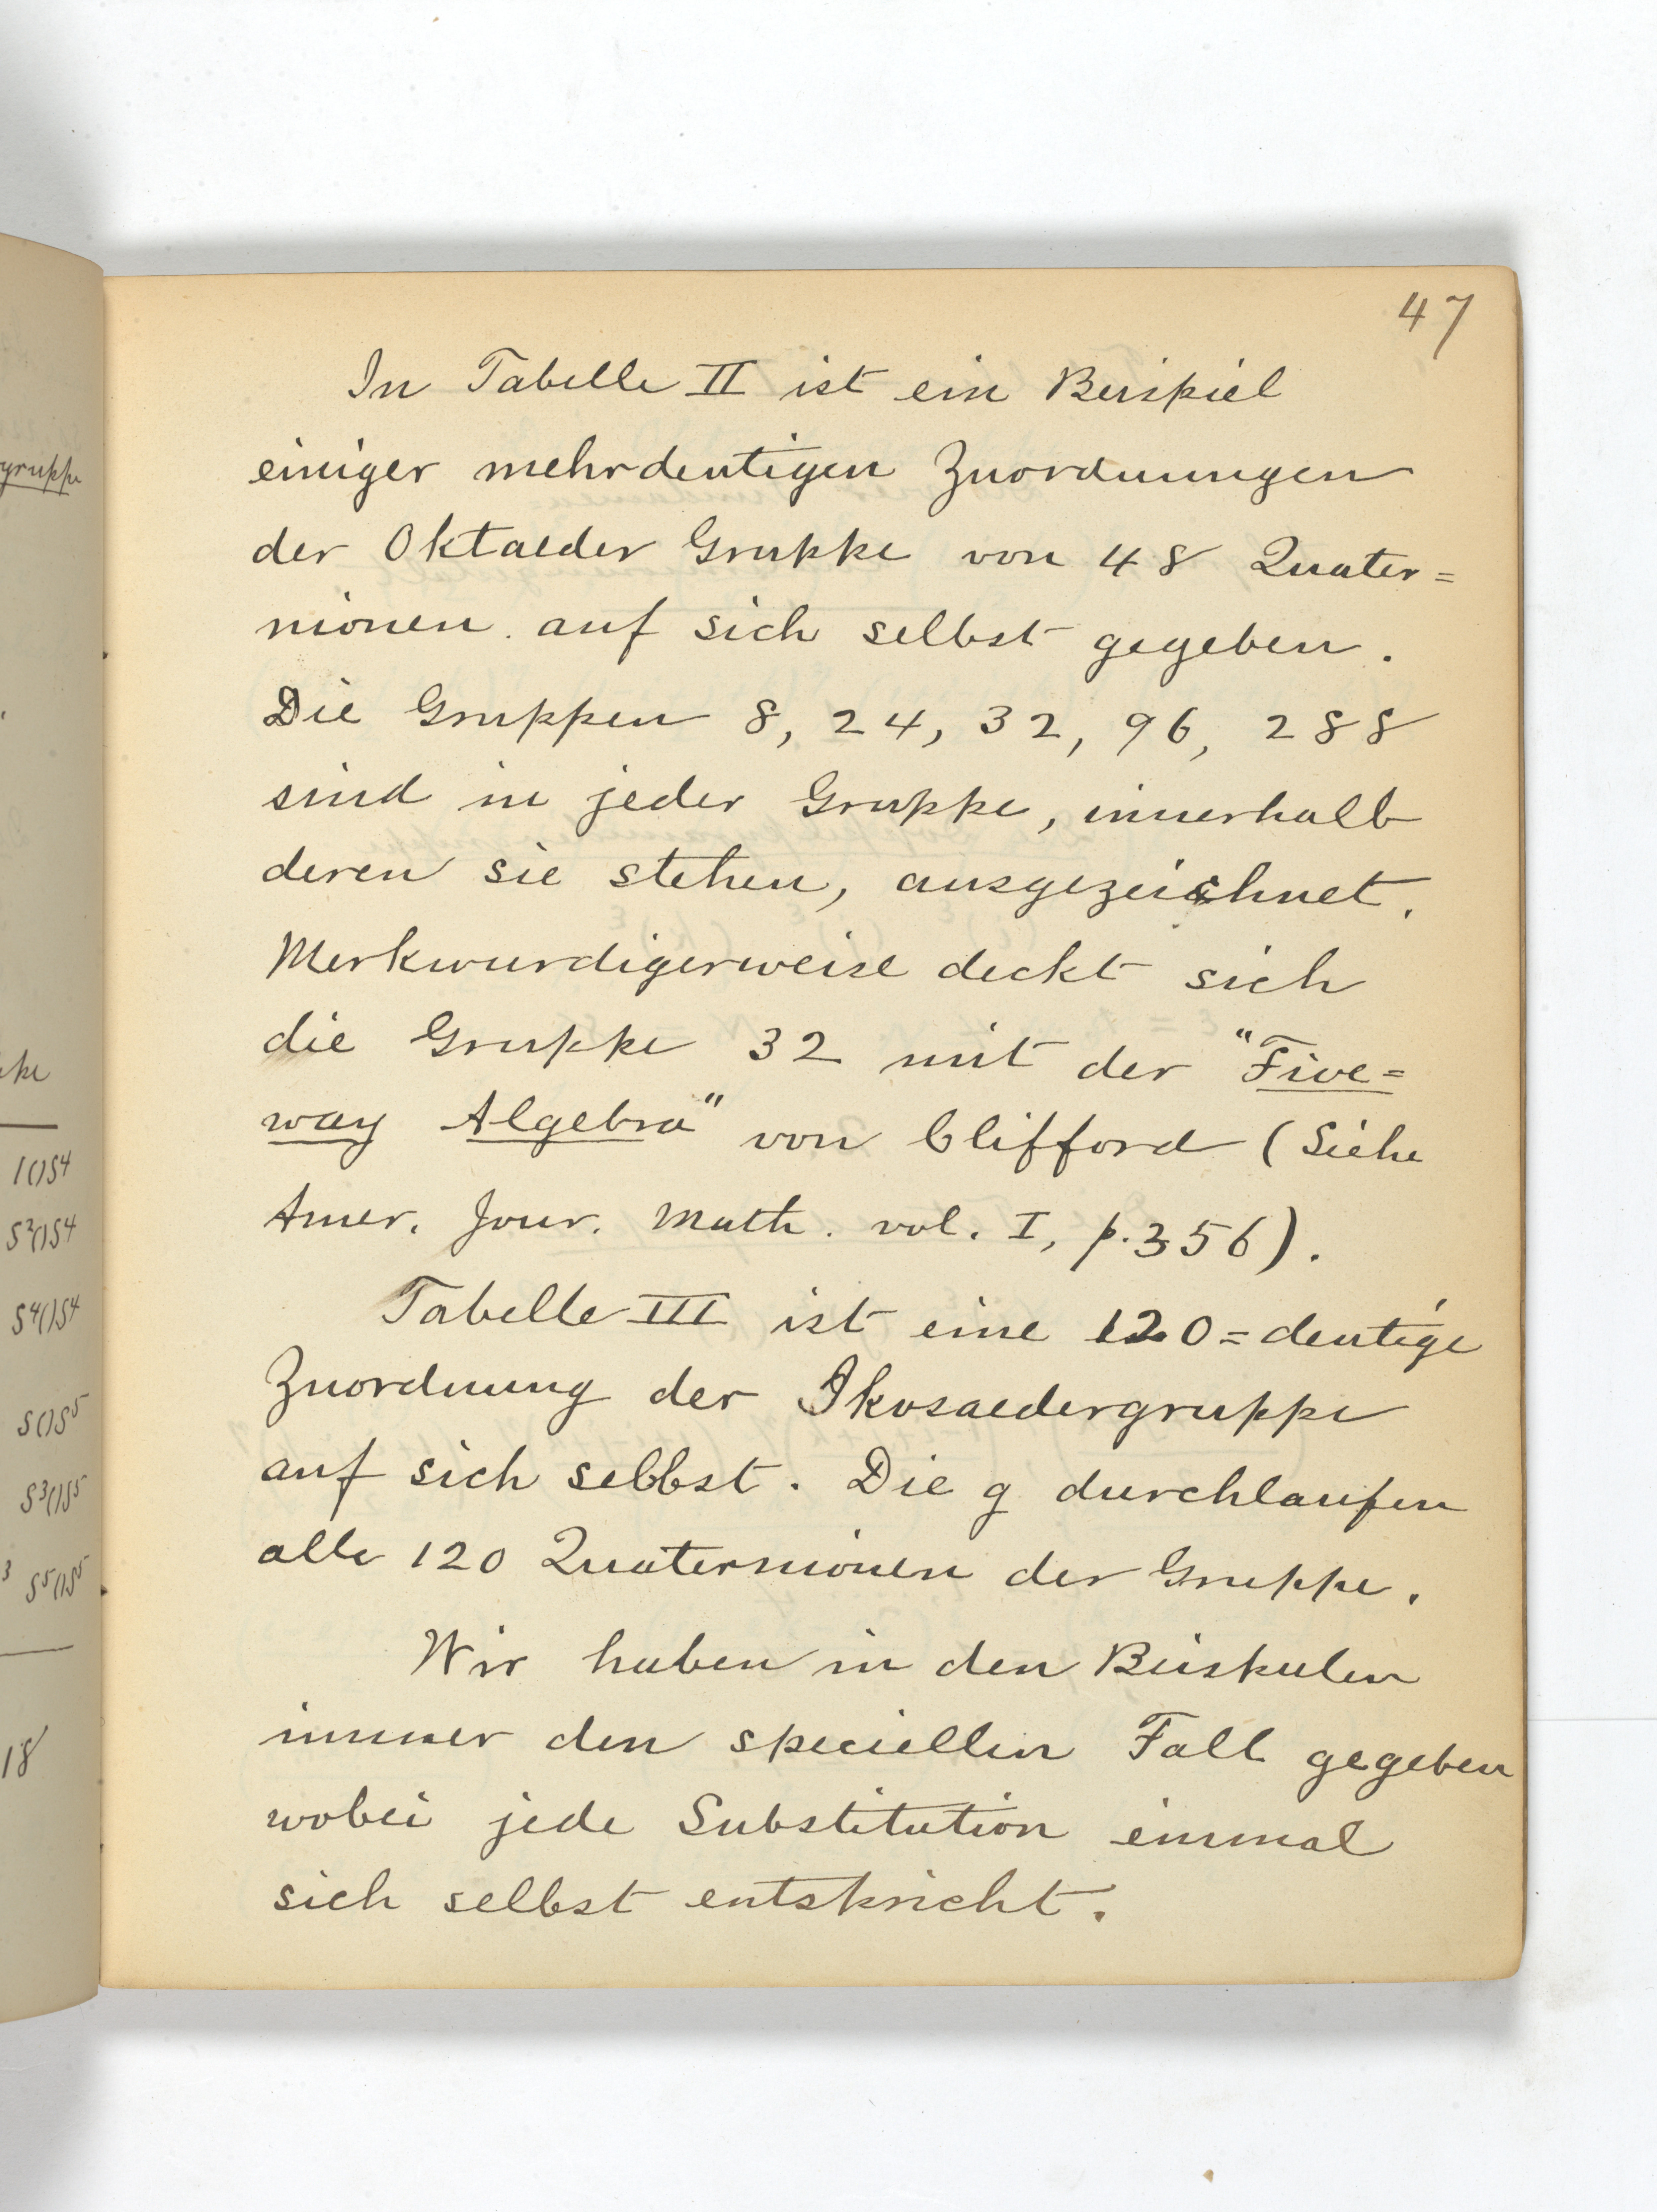 gruppe
ppe
1()S⁴
S²()S⁴
S⁴()S⁴
S()S⁵
S³()S⁵
³ S⁵()S⁵
18
47
In Tabelle II ist ein Beispiel
einiger mehrdeutigen Zuordnungen
der Oktaeder Gruppe von 48 Quater=
nionen auf sich selbst gegeben.
Die Gruppen 8, 24, 32, 96, 288
sind in jeder Gruppe, innerhalb
deren sie stehen, ausgezeichnet.
Merkwurdigerweise deckt sich
die Gruppe 32 mit der "Five=
way Algebra" von Clifford (Siehe
Amer. Jour. Math. vol. I, p. 356).
Tabelle III ist eine 120=deutige
Zuordnung der Ikosaedergruppe
auf sich selbst. Die g durchlaufen
alle 120 Quaternionen der Gruppe.
Wir haben in den Beispielen
immer den speciellen Fall gegeben
wobei jede Substitution einmal
sich selbst entspricht.